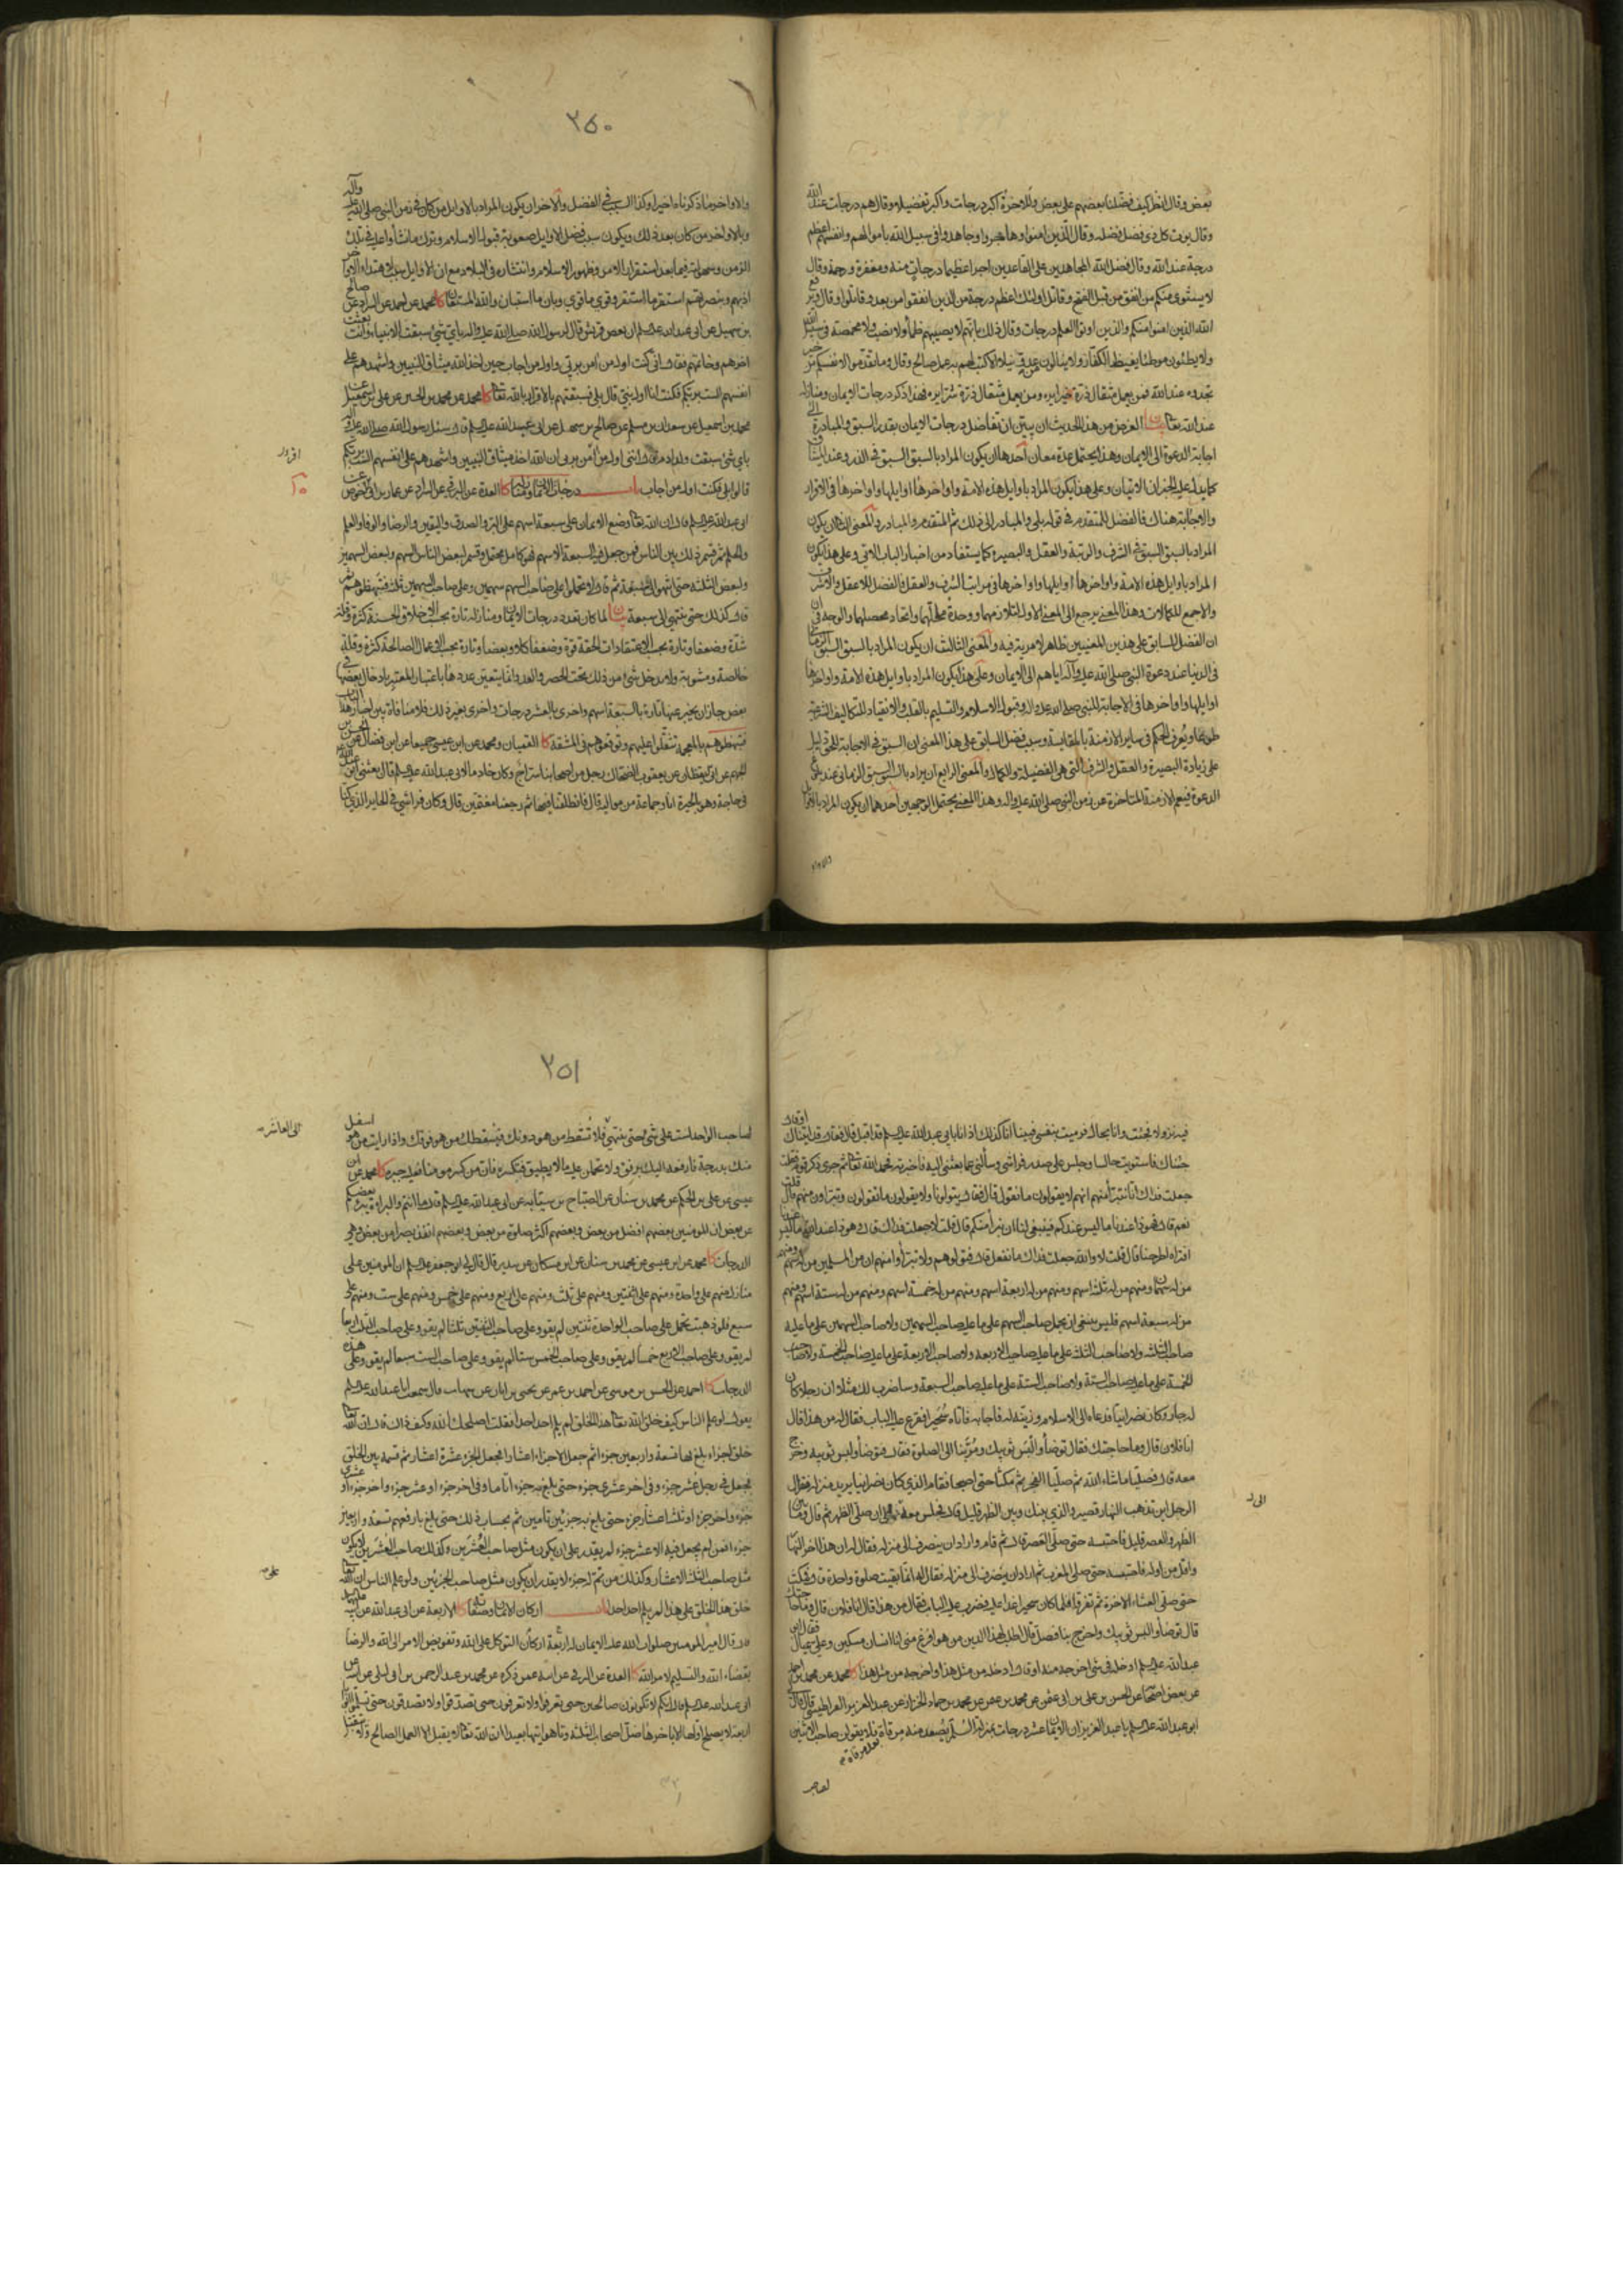 بعض وقال انظر كيف فضلنا بعضهم على بعض وللاخرة اكبر درجات واكبر تفضيلا وقال هم درجات عند الله
وقال يؤت كل ذي فضل فضله وقال الذين امنوا وهاجروا وجاهدوا في سبيل الله باموالهم وانفسهم اعظم
درجة عند الله وقال فضل الله المجاهدين على القاعدين اجرا عظيما درجات منه ومغفرة ورحمة وقال
لا يستوي منكم من انفق من قبل الفتح وقاتل اولئك اعظم درجة من الذين انفقوا من بعد وقاتلوا وقال يرفع
الله الذين امنوا منكم والذين اوتوا العلم درجات وقال ذلك بانهم لا يصيبهم ظمأ ولا نصب ولا مخمصة في سبيل الله
ولا يطئون موطئا يغيظ الكفار ولا ينالون من عدو نيلا الا كتب لهم به عمل صالح وقال وما تقدموا لانفسكم من خير
تجدوه عند الله فمن يعمل مثقال ذرة خيرا يره ومن يعمل مثقال ذرة شرا يره فهذا ذكر درجات الايمان ومنازله
عند الله تعالى بيان الغرض من هذا الحديث ان يبين ان تفاضل درجات الايمان بقدر السبق والمبادرة الى
اجابة الدعوة الى الايمان وهذا يحتمل عدة معان احدها ان يكون المراد بالسبق السبق في الذر وعند الميثاق
كما يدل عليه الخبران الاتيان وعلى هذا يكون المراد باوايل هذه الامة واواخرها اوايلها واواخرها في الاقرار
والاجابة هناك فالفضل للمتقدم في قوله بلى والمبادر الى ذلك ثم المتقدم والمبادر والمعنى الثاني ان يكون
المراد بالسبق السبق في الشرف والرتبة والعقل والبصيرة كما يستفاد من اخبار الباب الاتي وعلى هذا يكون
المراد باوايل هذه الامة واواخرها اوايلها واواخرها في مراتب الشرف والعقل فالفضل للاعقل والاشرف
والاجمع للكمالات وهذا المعنى يرجع الى المعنى الاول لتلازمهما ووحدة محليهما واتحاد محصلهما والوجه في
ان الفضل للسابق على هذين المعنيين ظاهر لا مرية فيه والمعنى الثالث ان يكون المراد بالسبق السبق الزماني
في الدنيا عند دعوة النبي صلى الله عليه وآله اياهم الى الايمان وعلى هذا يكون المراد باوايل هذه الامة واواخرها
اوايلها واواخرها في الاجابة للنبي صلى الله عليه واله وقبول الاسلام والتسليم بالقلب والانقياد للتكاليف الشرعية
طوعا ويعرف الحكم في ساير الازمنة بالمقايسة وسبب فضل السابق على هذا المعنى ان السبق في الاجابة للحق دليل
على زيادة البصيرة والعقل والشرف التي هي الفضيلة والكمال والمعنى الرابع ان يراد بالسبق السبق الزماني عند بلوغ
الدعوة فيعم الازمنة المتاخرة عن زمن النبي صلى الله عليه واله وهذا المعنى يحتمل الوجهين احدهما ان يكون المراد بالاوايل
٢٥٠
والاواخر ما ذكرناه اخيرا وكذا السبب في الفضل والاخر ان يكون المراد بالاوايل من كان في زمن النبي صلى الله عليه وآله
وبالاواخر من كان بعد ذلك ويكون سبب فضل الاوايل صعوبة قبول الاسلام وترك ما نشأوا عليه في تلك
الزمن وسهولته فيما بعد استقرار الامر وظهور الاسلام وانتشاره في البلاد مع ان الاوايل سبب لاهتداء الاواخر
اذ بهم وبنصرتهم استقر ما استقر وقوي ما قوي وبان ما استبان والله المستعان كا محمد عن احمد عن السراد عن صالح
بن سهل عن ابي عبد الله عليه السلم ان بعض قريش قال لرسول الله صلى الله عليه واله باي شئ سبقت الانبياء وانت بعثت
اخرهم وخاتمهم فقال اني كنت اول من آمن بربي واول من اجاب حين اخذ الله ميثاق النبيين واشهدهم على
انفسهم الست بربكم فكنت انا اول نبي قال بلى فسبقتهم بالاقرار بالله تعالى كا محمد عن محمد بن الحسين عن علي بن اسمعيل عن
محمد بن اسمعيل عن سعدان بن مسلم عن صالح بن سهل عن ابي عبد الله عليه السلم قال سئل رسول الله صلى الله عليه واله
باي شئ سبقت ولد ادم قال انني اول من آمن بربي ان الله اخذ ميثاق النبيين واشهدهم على انفسهم الست بربكم
قالوا بلى فكنت اول من اجاب باب درجات الايمان ومنازله كا العدة عن البرقي عن السراد عن عمار بن ابي الاحوص عن
ابي عبد الله عليه السلم قال ان الله تعالى وضع الايمان على سبعة اسهم على البر والصدق واليقين والرضا والوفا والعلم
والحلم ثم قسم ذلك بين الناس فمن جعل فيه السبعة الاسهم فهو كامل محتمل وقسم لبعض الناس السهم ولبعض السهمين
ولبعض الثلثة حتى انتهوا الى السبعة ثم قال لا تحملوا على صاحب السهم سهمين وعلى صاحب السهمين ثلثة فتبهظوهم ثم
قال كذلك حتى ينتهي الى سبعة بيان لما كان تعدد درجات الايمان ومنازله تارة بحسب الاخلاق الحسنة كثرة وقلة
شدة وضعفا وتارة بحسب الاعتقادات الحقة قوة وضعفا كلا وبعضا وتارة بحسب الاعمال الصالحة كثرة وقلة
خالصة ومشوبة ولا مدخل شئ من ذلك تحت الحصر والعد وانما يتعين عددها باعتبار المعتبر بادخال بعضها في
بعض جاز ان يخبر عنها تارة بالسبعة اسهم واخرى بالعشر درجات واخرى بغير ذلك فلا منافاة بين اخبار هذا الباب
فتبهظوهم بالمعجمة تثقلوا عليهم وتوقعوهم في المشقة كا القميان ومحمد عن ابن عيسى جميعا عن ابن فضال عن الحسن بن
الجهم عن ابي اليقظان عن يعقوب بن الضحاك عن رجل من اصحابنا سراج وكان خادما لابي عبد الله عليه السلم قال بعثني ابو عبد الله
في حاجة وهو بالحيرة انا وجماعة من مواليه قال فانطلقنا فيها ثم رجعنا مغتمين قال وكان فراشي في الحاير الذي كنا
اقرار
فيه نزولا فجئت وانا بحال فرميت بنفسي فبينا انا كذلك اذ انا بابي عبد الله عليه السلم قد اقبل قال فقال قد اتيناك او قال
جئناك فاستويت جالسا وجلس على صدر فراشي وسألني عما بعثني اليه فاخبرته فحمد الله تعالى ثم جرى ذكر قوم فقلت
جعلت فداك انا نتبرأ منهم انهم لا يقولون ما نقول قال فقال يتولونا ولا يقولون ما تقولون تبرؤن منهم قال قلت
نعم قال فهو ذا عندنا ما ليس عندكم فينبغي لنا ان نبرأ منكم قال قلت لا جعلت فداك قال وهو ذا عند الله ما ليس عندنا
افتراه اطرحنا قال قلت لا والله جعلت فداك ما نفعل قال فتولوهم ولا تبرأوا منهم ان من المسلمين من له سهم ومنهم
من له سهمان ومنهم من له ثلثة اسهم ومنهم من له اربعة اسهم ومنهم من له خمسة اسهم ومنهم من له ستة اسهم ومنهم
من له سبعة اسهم فليس ينبغي ان يحمل صاحب السهم على ما عليه صاحب السهمين ولا صاحب السهمين على ما عليه
صاحب الثلثة ولا صاحب الثلثة على ما عليه صاحب الاربعة ولا صاحب الاربعة على ما عليه صاحب الخمسة ولا صاحب
الخمسة على ما عليه صاحب الستة ولا صاحب الستة على ما عليه صاحب السبعة وساضرب لك مثلا ان رجلا كان
له جار وكان نصرانيا فدعاه الى الاسلام وزينه له فاجابه فاتاه سحيرا فقرع عليه الباب فقال له من هذا قال
انا فلان قال وما حاجتك فقال توضأ والبس ثوبيك ومر بنا الى الصلوة قال فتوضأ ولبس ثوبيه وخرج
معه قال فصليا ما شاء الله ثم صليا الفجر ثم مكثا حتى اصبحا فقام الذي كان نصرانيا يريد منزله فقال
الرجل اين تذهب النهار قصير والذي بينك وبين الظهر قليل قال فجلس معه الى ان صلى الظهر ثم قال وما بين
الظهر والعصر قليل فاحتبسه حتى صلى العصر قال ثم قام واراد ان ينصرف الى منزله فقال له ان هذا اخر النهار
واقل من اوله فاحتبسه حتى صلى المغرب ثم اراد ان ينصرف الى منزله فقال له انما بقيت صلوة واحدة قال فمكث
حتى صلى العشاء الاخرة ثم تفرقا فلما كان سحيرا غدا عليه فضرب عليه الباب فقال من هذا قال انا فلان قال وما حاجتك
قال توضأ والبس ثوبيك واخرج بنا فصل قال اطلب لهذا الدين من هو افرغ مني انا انسان مسكين وعلي عيال فقال ابو
عبد الله عليه السلم ادخله في شئ اخرجه منه او قال ادخله من مثل هذا واخرجه من مثل هذا كا محمد عن محمد بن احمد
عن بعض اصحابنا عن الحسن بن علي بن ابي عثمان عن محمد بن عثمان عن محمد بن حماد الخزاز عن عبد العزيز القراطيسي قال قال لي
ابو عبد الله عليه السلم يا عبد العزيز ان الايمان عشر درجات بمنزلة السلم يصعد منه مرقاة فلا يقولن صاحب الاثنين
بعد مرقاة
لصاحب
٢٥١
لصاحب الواحد لست على شئ حتى ينتهي فلا تسقط من هو دونك فيسقطك من هو فوقك واذا رأيت من هو اسفل
منك بدرجة فارفعه اليك برفق ولا تحملن عليه ما لا يطيق فتكسره فان من كسر مؤمنا فعليه جبره كا محمد عن ابن
عيسى عن علي بن الحكم عن محمد بن سنان عن الصباح بن سيابة عن ابي عبد الله عليه السلم قال ما انتم والبراءة يبرء بعضكم
من بعض ان المؤمنين بعضهم افضل من بعض وبعضهم اكثر صلوة من بعض وبعضهم انفذ بصرا من بعض وهي
الدرجات كا محمد عن ابن عيسى عن محمد بن سنان عن ابن مسكان عن سدير قال قال لي ابو جعفر عليه السلم ان المؤمنين على
منازل منهم على واحدة ومنهم على اثنتين ومنهم على ثلث ومنهم على اربع ومنهم على خمس ومنهم على ست ومنهم على
سبع فلو ذهبت تحمل على صاحب الواحدة ثنتين لم يقو وعلى صاحب الثنتين ثلثا لم يقو وعلى صاحب الثلث اربعا
لم يقو وعلى صاحب الاربع خمسا لم يقو وعلى صاحب الخمس ستا لم يقو وعلى صاحب الست سبعا لم يقو وعلى هذه
الدرجات كا احمد عن الحسن بن موسى عن احمد بن عمر عن يحيى بن ابان عن شهاب قال سمعت ابا عبد الله عليه السلم
يقول لو علم الناس كيف خلق الله تعالى هذا الخلق لم يلم احد احدا فقلت اصلحك الله وكيف ذاك قال ان الله تعالى
خلق اجزاء بلغ بها تسعة واربعين جزء اثم جعل الاجزاء اعشارا فجعل الجزء عشرة اعشار ثم قسمه بين الخلق
فجعل في رجل عشر جزء وفي اخر عشري جزء حتى بلغ به جزء اتاما وفي اخر جزء او عشر جزء واخر جزء او عشري
جزء واخر جزء او ثلثة اعشار جزء حتى بلغ به جزئين تامين ثم بحساب ذلك حتى بلغ بارفعهم تسعة واربعين
جزء افمن لم يجعل فيه الا عشر جزء لم يقدر على ان يكون مثل صاحب العشرين وكذلك صاحب العشرين لا يكون
مثل صاحب الثلثة الاعشار وكذلك من تم له جزء لا يقدر ان يكون مثل صاحب الجزئين ولو علم الناس ان الله تعالى
خلق هذا الخلق على هذا لم يلم احد احدا باب اركان الايمان وصفاته كا الاربعة عن ابي عبد الله عن ابيه عليهما السلم
قال قال امير المؤمنين صلوات الله عليه الايمان له اربعة اركان التوكل على الله وتفويض الامر الى الله والرضا
بقضاء الله والتسليم لامر الله كا العدة عن البرقي عن ابيه عمن ذكره عن محمد بن عبد الرحمن بن ابي ليلى عن ابيه عن
ابي عبد الله عليه السلم قال انكم لا تكونون صالحين حتى تعرفوا ولا تعرفون حتى تصدقوا ولا تصدقون حتى تسلموا ابوابا
اربعة لا يصلح اولها الا باخرها ضل اصحاب الثلثة وتاهوا تيها بعيدا ان الله تعالى لا يقبل الا العمل الصالح ولا يتقبل
الى العاشر